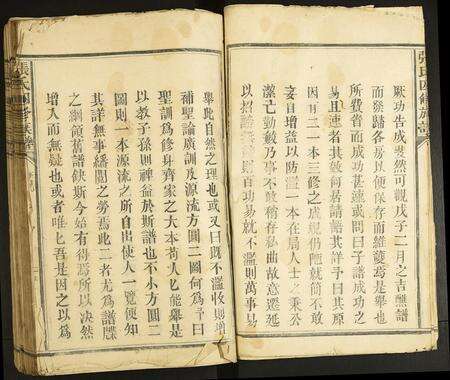 張氏四修族譜
厥功告成斐然可觀戊子二月之吉醮譜
而發諸各房以便保存而維護焉是舉也
所費省而成功甚速或問曰子譜成功之
易且速者其敘何居請語其詳予曰其原
因有二一本三修之成規仍陋就簡不敢
妄自增益以防濫一本在局人士之秉公
潔亡勤毅乃事不敢稍存私曲故意遷延
以招謗
財百功易就不濫則萬事易
舉此自然之理也或又曰既不濫收則增
補聖諭廣訓及源流方圓二圖何為予曰
聖訓為修身齊家之大本苟人匕能舉是
以教子孫則裨益於斯譜也不小方圓二
圖則一本源流之所自出使人一覽便知
其詳無事繙閱之勞焉此二者尤為譜牒
之綱領舊譜缺斯今始有得焉所以决然
增入而無疑也或者唯匕吾是因之以為
張氏四修族譜